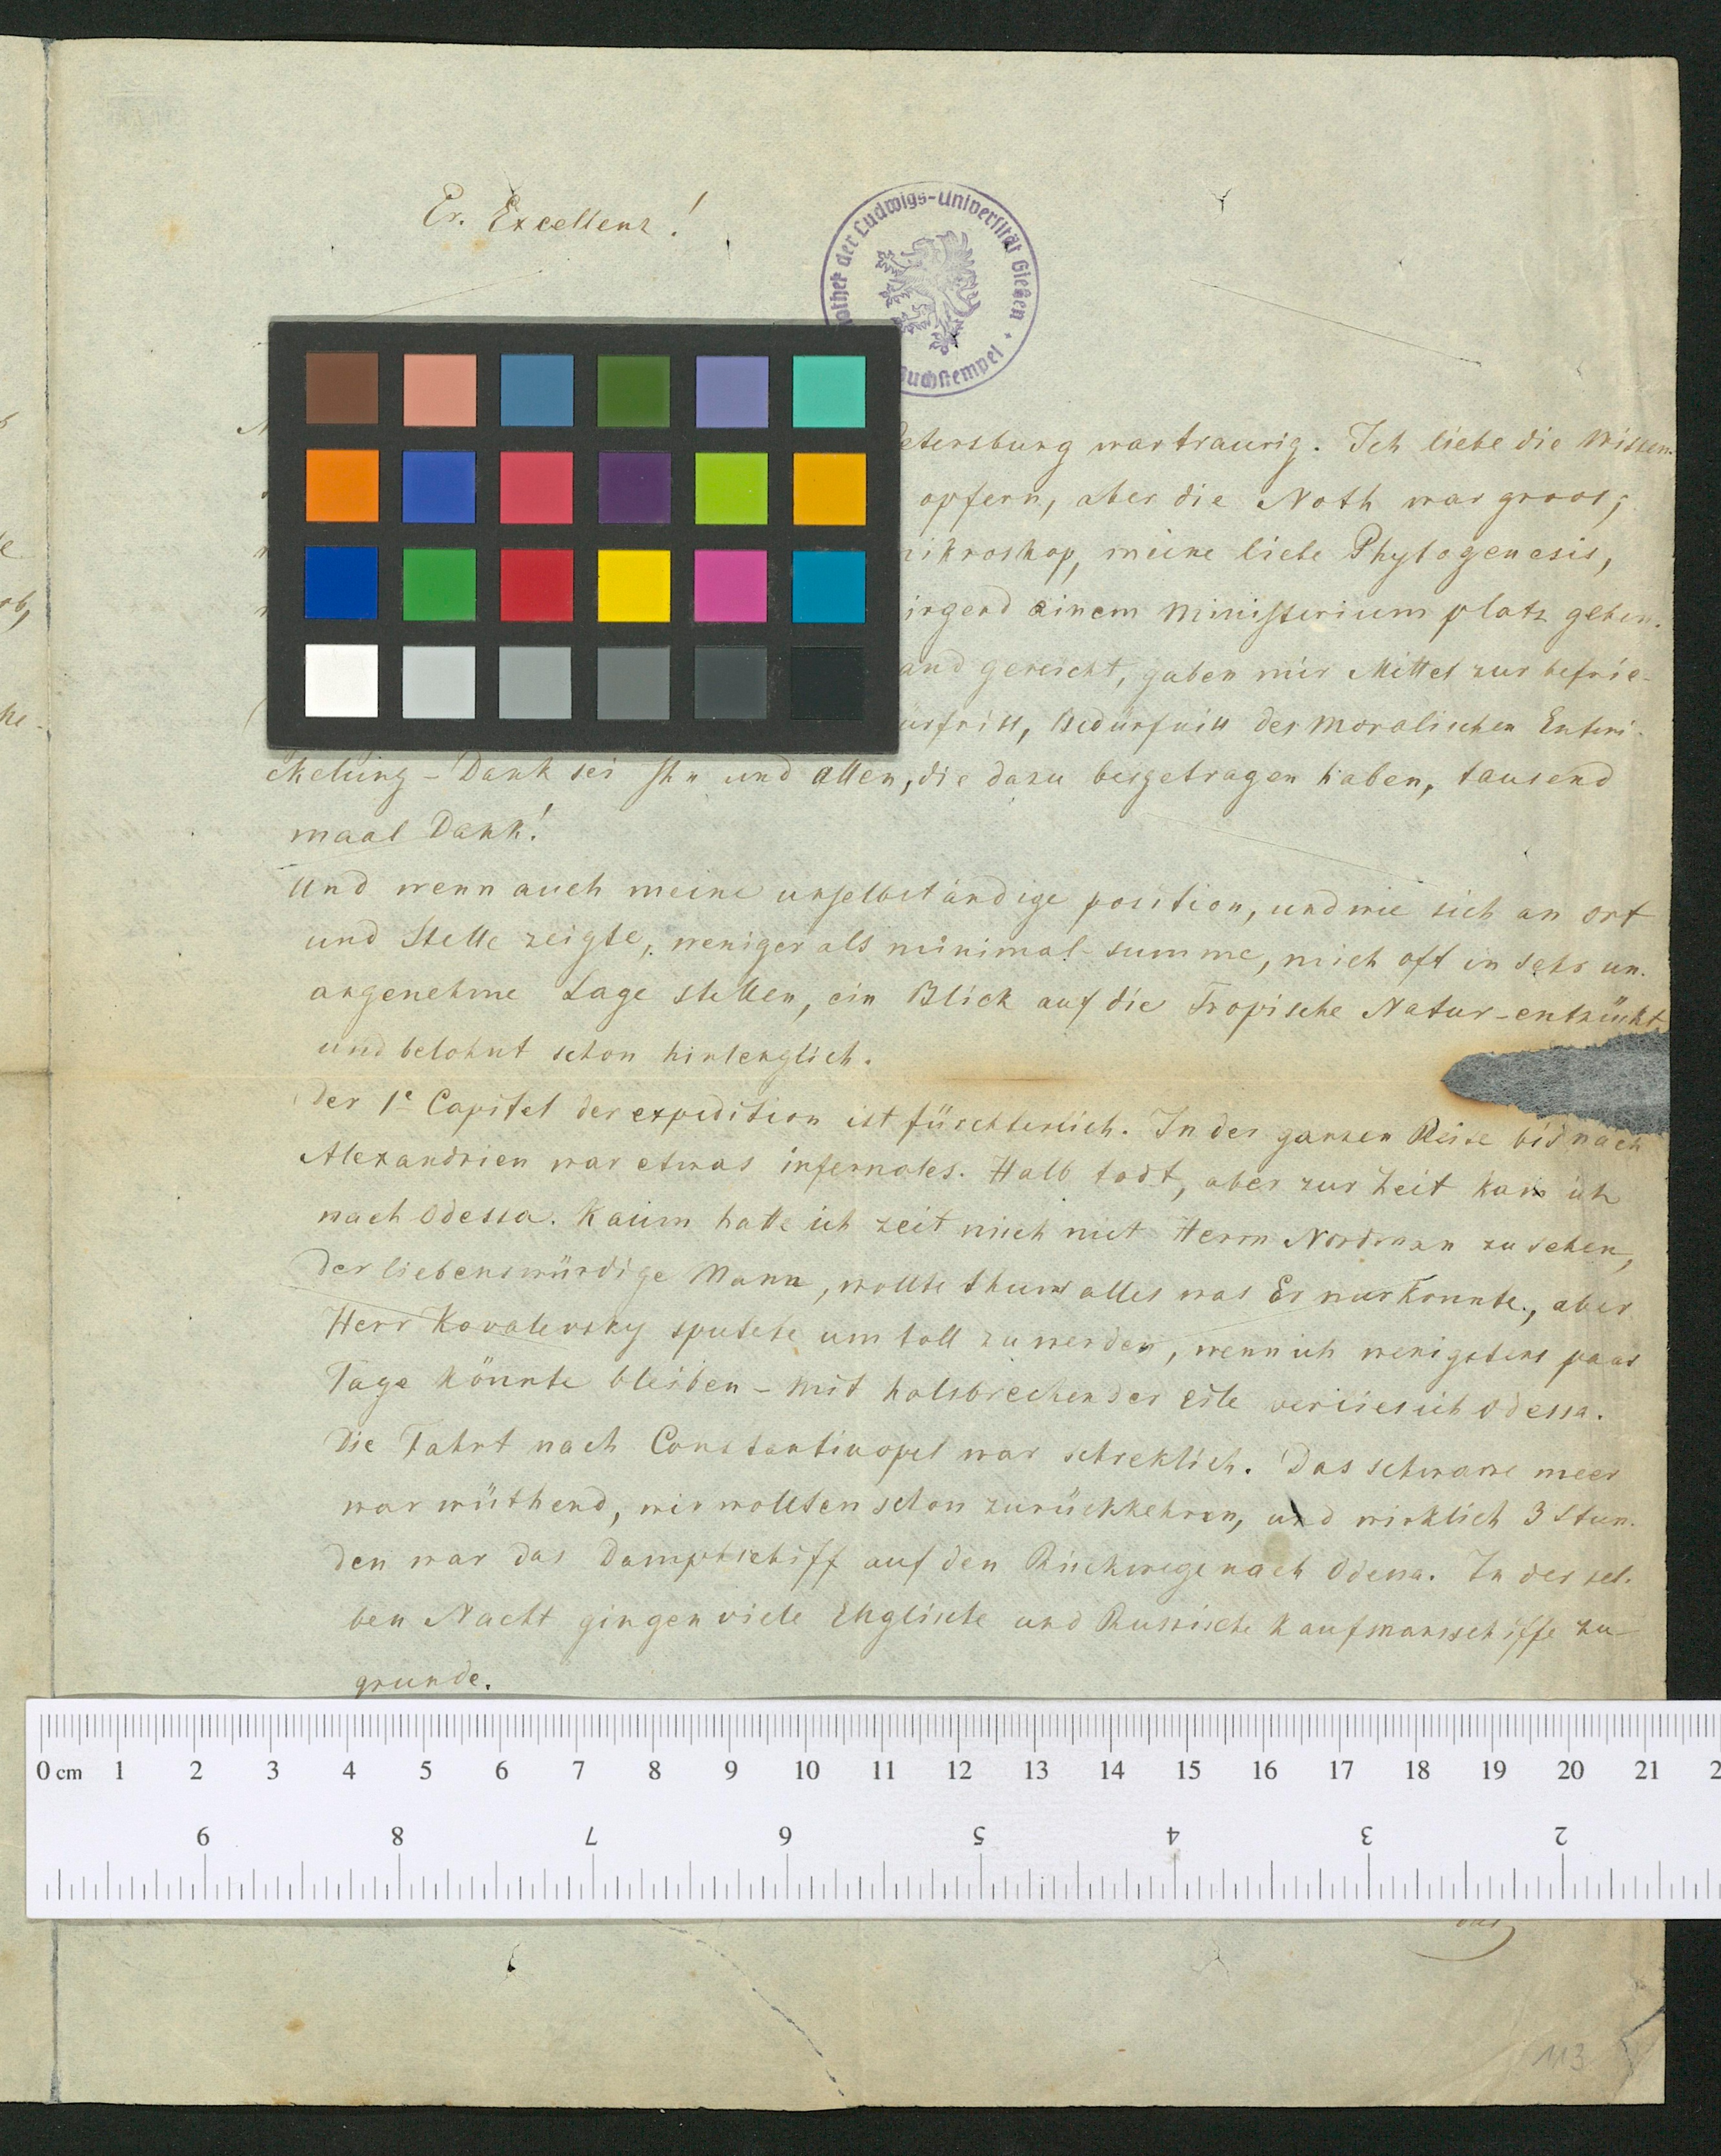 Er. Excellenz!
othek der Ludwigs-Universität Gießen
Buchstempel
Petersburg war traurig. Ich liebe die Wissen-
opfern, aber die Noth war groos;
mikroskop, meine liebe Phytogenesis,
irgend einem Ministerium platz geben.
and gereicht, gaben mir Mittel zur befrie-
ürfniss, Bedürfniss der Moralischen Entwi-
ckelung - Dank sei Ihn und allen, die dazu beygetragen haben, tausend
maal Dank!
Und wenn auch meine unselbständige position, und wie sich an ort
und Stelle zeigte, weniger als minimal-summe, mich oft in sehr un-
angenehme Lage stellen, ein Blick auf die Tropische Natur-entzückt
und belohnt schon hinlenglich.
Der 1e Capitel der expedition ist fürchterlich. In der ganzen Reise bis nach
Alexandrien war etwas infernales. Halb todt, aber zur Zeit kam ich
nach Odessa. Kaum hatte ich zeit mich mit Herrn Nordmann zu sehen,
der liebenswürdige Mann, wollte thun alles was Er nur konnte, aber
Herr Kovalevsky sputete um toll zu werden, wenn ich wenigstens paar
Tage könnte bleiben - mit halsbrechender eile verlies ich Odessa.
Die Fahrt nach Constantinopel war schreklich. Das schwarze meer
war wüthend, wir wollten schon zurückkehren, und wirklich 3 Stun-
den war das Dampfschiff auf den Rückwege nach Odessa. In der sel-
ben Nacht gingen viele Englische und Russische Kaufmansschiffe zu
grunde.
0 cm 1 2 3 4 5 6 7 8 9 10 11 12 13 14 15 16 17 18 19 20 21 2
9 8 7 6 5 4 3 2
das
113